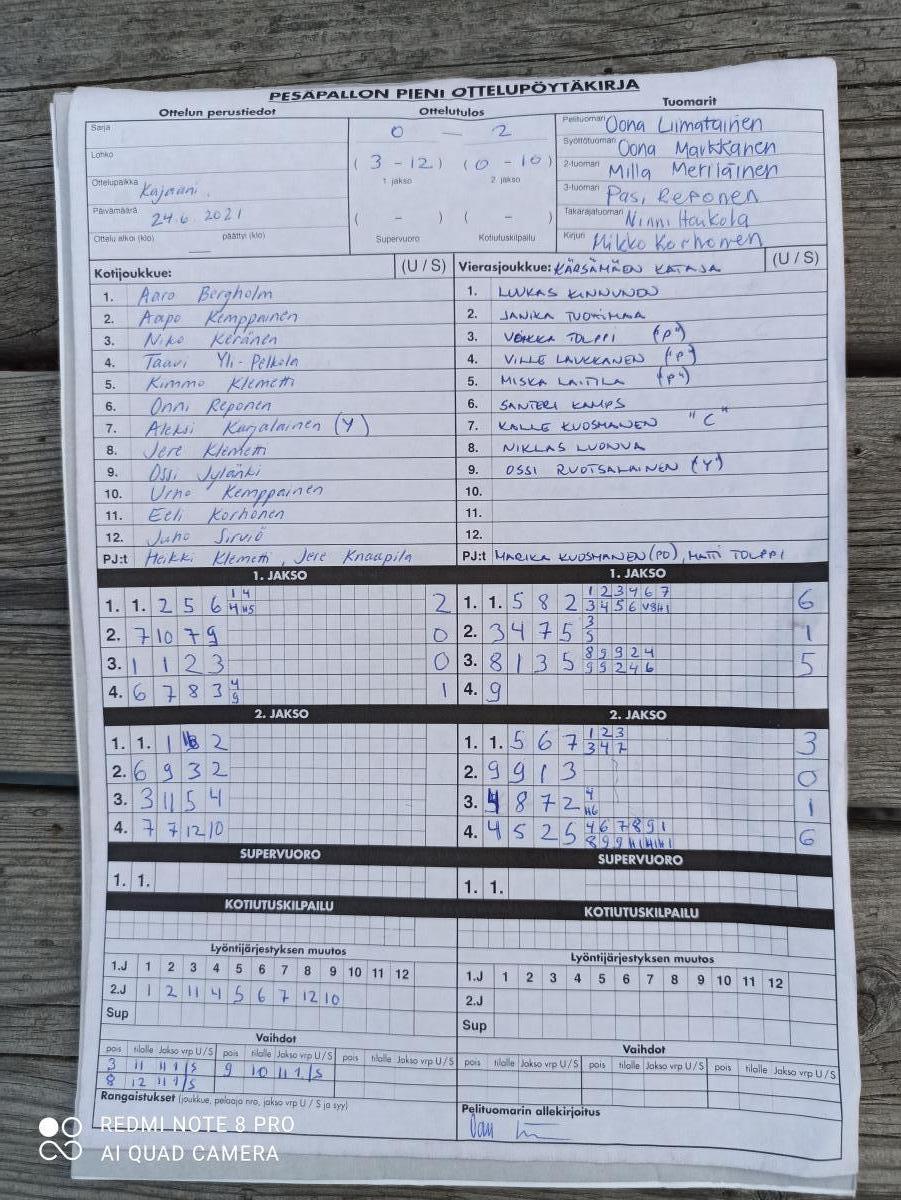 PESÄPALLON PIENI OTTELUPÖYTÄKIRJA
Ottelun perustiedot
Ottelutulos
Tuomarit
Sarja
Lohko
Ottelupaikka Kajaani.
Päivämäärä 24.6.2021
Ottelu alkoi (klo) päättyi (klo)
0 - 2
(3 - 12) (0 - 10)
1 jakso 2 jakso
( - ) ( - )
Supervuoro Kotiutuskilpailu
Pelituomari Oona Liimatainen
Syöttötuomari Oona Markkanen
2-tuomari Milla Meriläinen
3-tuomari Pasi Reponen
Takarajatuomari Ninni Haikola
Kirjuri Mikko Korhonen
Kotijoukkue: (U / S)
1. Aaro Bergholm
2. Aapo Kemppainen
3. Niko Keränen
4. Taavi Yli-Pelkola
5. Kimmo Klemetti
6. Onni Reponen
7. Aleksi Karjalainen (Y)
8. Jere Klemetti
9. Ossi Jylänki
10. Urho Kemppainen
11. Eeli Korhonen
12. Juho Sirviö
PJ:t Heikki Klemetti, Jere Knaapila
Vierasjoukkue: KÄRSÄMÄEN KATAJA (U / S)
1. LUUKAS KINNUNEN
2. JANIKA TUOTIMAA
3. TOLPPI
4. VILLE LAUKKANEN
5. MISKA LAITILA
6. SANTERI KAMPS
7. KALLE KUOSMANEN "C"
8. NIKLAS LUONUA
9. OSSI RUOTSALAINEN (Y)
10.
11.
12.
PJ:t MARIKA KUOSMANEN (PO), MATTI TOLPPI
1. JAKSO
1. 1. 2 5 6 2
2. 7 10 7 9 0
3. 1 1 2 3 0
4. 6 7 8 3 4 9 1
1. JAKSO
1. 1. 5 8 2 1 2 3 4 6 7 6
2. 3 4 7 5 3 5 1
3. 8 1 3 5 8 9 9 2 4 9 9 2 4 6 5
4. 9
2. JAKSO
1. 1. 1 2
2. 6 9 3 2
3. 3 11 5 4
4. 7 7 12 10
2. JAKSO
1. 1. 5 6 7 1 2 3 3 4 7 3
2. 9 9 1 3 0
3. 4 8 7 2 4 1
4. 4 5 2 5 4 6 7 8 9 1 6
SUPERVUORO
1. 1.
SUPERVUORO
1. 1.
KOTIUTUSKILPAILU
KOTIUTUSKILPAILU
Lyöntijärjestyksen muutos
1.J 1 2 3 4 5 6 7 8 9 10 11 12
2.J 1 2 11 4 5 6 7 12 10
Sup
Lyöntijärjestyksen muutos
1.J 1 2 3 4 5 6 7 8 9 10 11 12
2.J
Sup
Vaihdot
pois tilalle Jakso vrp U / S pois tilalle Jakso vrp U / S pois tilalle Jakso vrp U / S
3 11 11 1/S 9 10 11 1/S
8 12 11 1/S
Vaihdot
pois tilalle Jakso vrp U / S pois tilalle Jakso vrp U / S pois tilalle Jakso vrp U / S
Rangaistukset (joukkue, pelaaja nro, jakso vrp U / S ja syy)
Pelituomarin allekirjoitus
REDMI NOTE 8 PRO
AI QUAD CAMERA